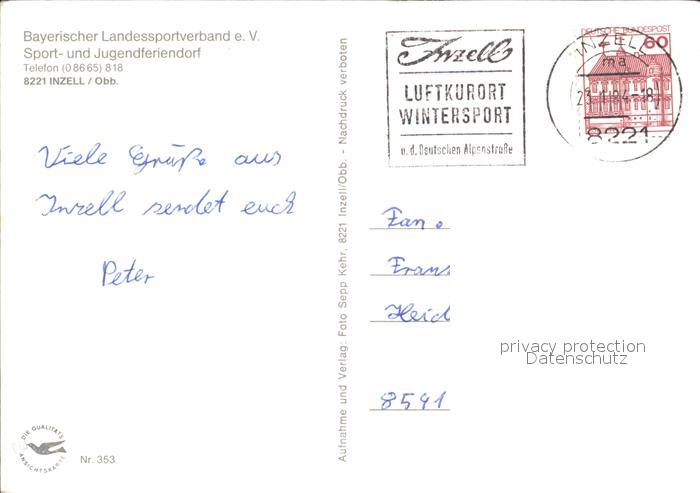 Bayerischer Landessportverband e. V.
Sport- und Jugendferiendorf
Telefon (0 86 65) 818
8221 INZELL / Obb.
Inzell
LUFTKURORT
WINTERSPORT
a. d. Deutschen Alpenstraße
DEUTSCHE BUNDESPOST
60
INZELL
ma
8221
Viele Grüße aus
Inzell sendet euch
Peter
Aufnahme und Verlag: Foto Sepp Kehr, 8221 Inzell/Obb. - Nachdruck verboten
Fam.
Frans
Heid
8541
privacy protection
Datenschutz
DIE QUALITÄTS
ANSICHTSKARTE
Nr. 353